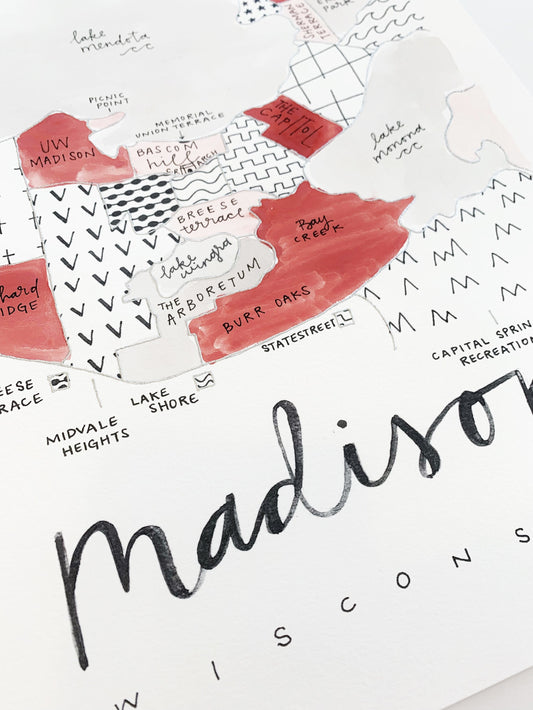 lake
mendota
PARK
SHERMAN
TERRACE
PICNIC
POINT
MEMORIAL
UNION TERRACE
THE
CAPITOL
UW
MADISON
BASCOM
hill
lake
monona
BREESE
terrace
BAY
CREEK
lake
wingra
THE
ARBORETUM
BURR OAKS
STATE STREET
CAPITAL SPRIN
RECREATION
LAKE
SHORE
MIDVALE
HEIGHTS
madison
WISCONS